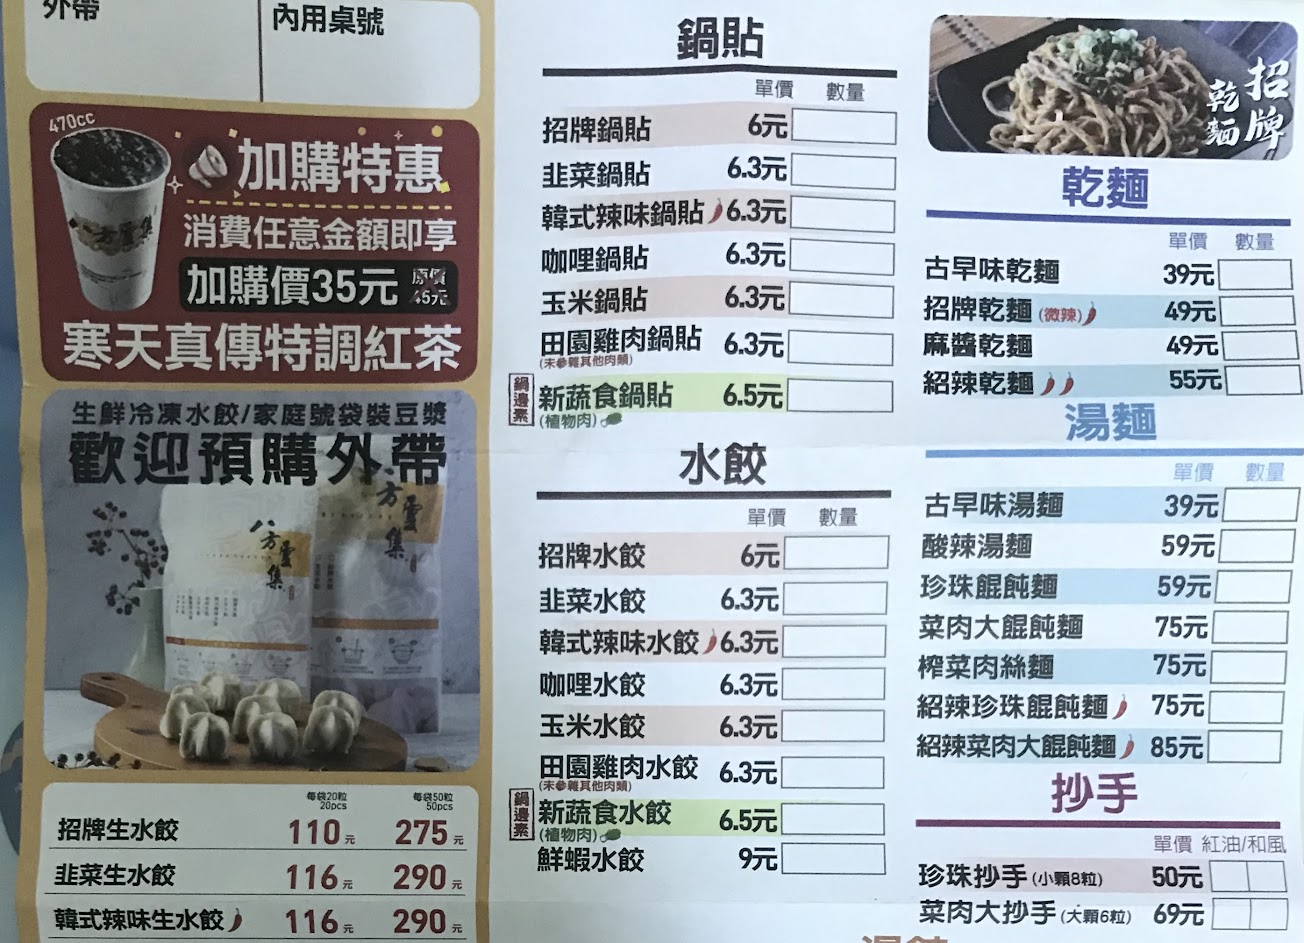 外帶
內用桌號
470cc
加購特惠
消費任意金額即享
加購價35元 原價45元
寒天真傳特調紅茶
生鮮冷凍水餃/家庭號袋裝豆漿
歡迎預購外帶
八方雲集
方雲集
每袋20粒 每袋50粒
20pcs 50pcs
招牌生水餃 110元 275元
韭菜生水餃 116元 290元
韓式辣味生水餃 116元 290元
鍋貼
單價 數量
招牌鍋貼 6元
韭菜鍋貼 6.3元
韓式辣味鍋貼 6.3元
咖哩鍋貼 6.3元
玉米鍋貼 6.3元
田園雞肉鍋貼 6.3元
(未參雜其他肉類)
鍋邊素
新蔬食鍋貼 6.5元
(植物肉)
水餃
單價 數量
招牌水餃 6元
韭菜水餃 6.3元
韓式辣味水餃 6.3元
咖哩水餃 6.3元
玉米水餃 6.3元
田園雞肉水餃 6.3元
(未參雜其他肉類)
鍋邊素
新蔬食水餃 6.5元
(植物肉)
鮮蝦水餃 9元
招牌
乾麵
乾麵
單價 數量
古早味乾麵 39元
招牌乾麵(微辣) 49元
麻醬乾麵 49元
紹辣乾麵 55元
湯麵
單價 數量
古早味湯麵 39元
酸辣湯麵 59元
珍珠餛飩麵 59元
菜肉大餛飩麵 75元
榨菜肉絲麵 75元
紹辣珍珠餛飩麵 75元
紹辣菜肉大餛飩麵 85元
抄手
單價 紅油/和風
珍珠抄手(小顆8粒) 50元
菜肉大抄手(大顆6粒) 69元